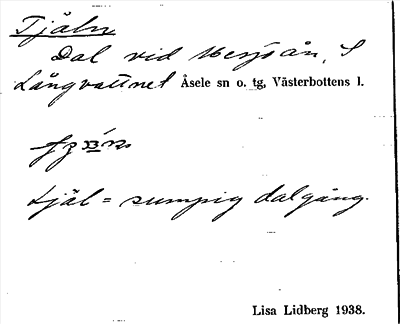 Tjäln
Dal vid
Långvattnet Åsele sn o. tg, Västerbottens l.
tjäl = sumpig dalgång.
Lisa Lidberg 1938.